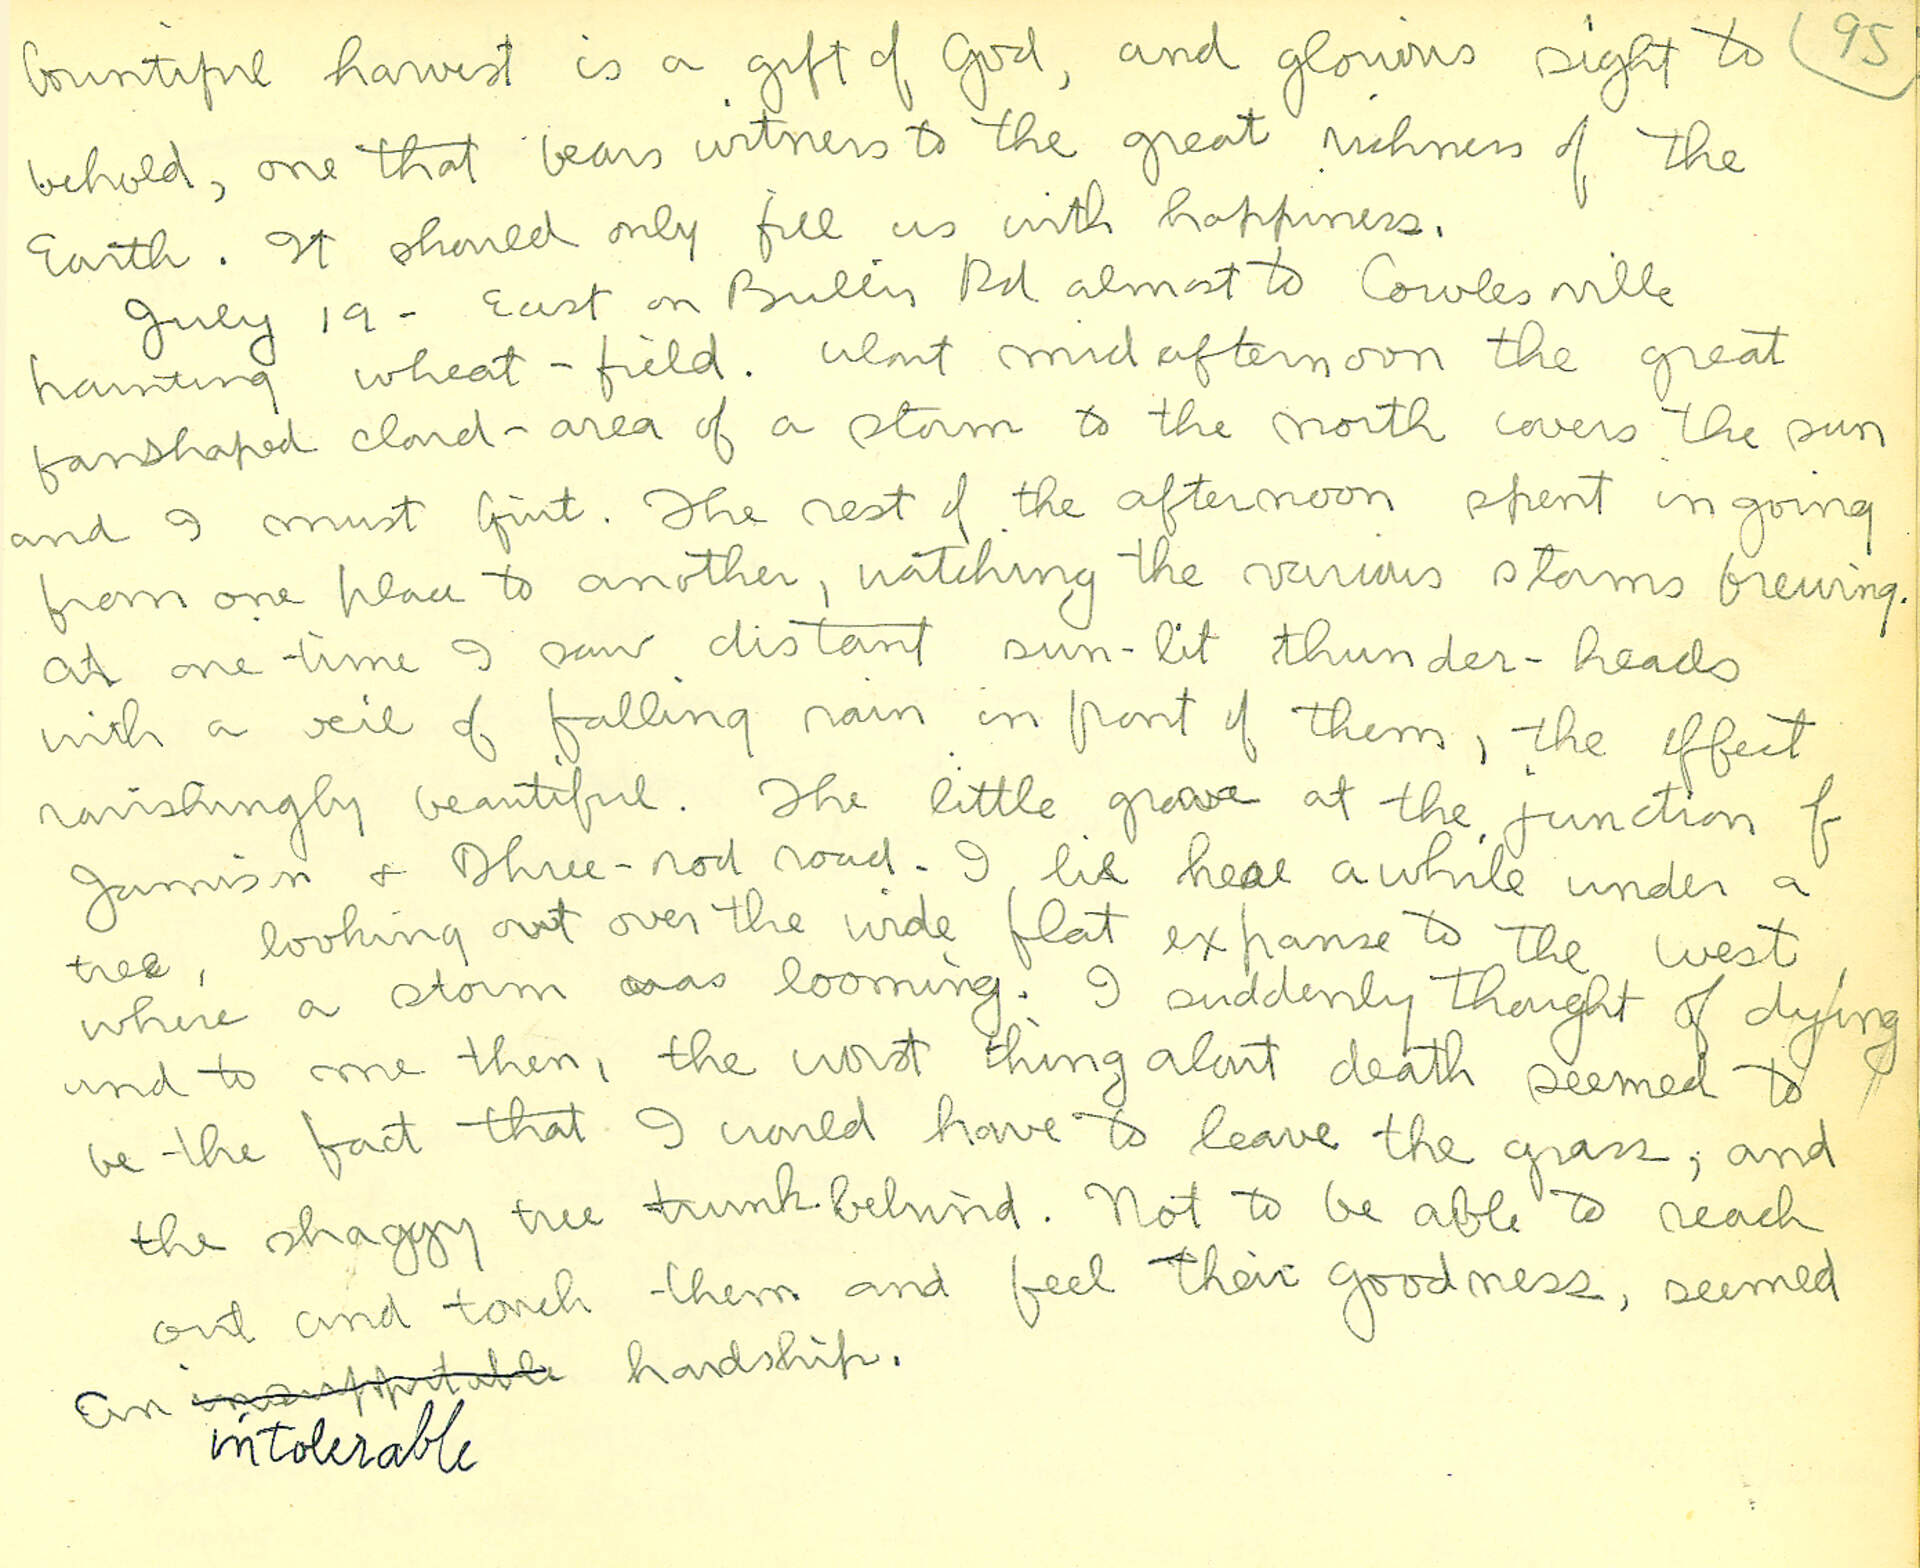 bountiful harvest is a gift of God, and glorious sight to 95
behold, one that bears witness to the great richness of the
Earth. It should only fill us with happiness.
July 19 - East on Bullis Rd almost to Cowlesville
haunting wheat-field. About midafternoon the great
fanshaped cloud-area of a storm to the north covers the sun
and I must quit. The rest of the afternoon spent in going
from one place to another, watching the various storms brewing.
At one time I saw distant sun-lit thunder-heads
with a veil of falling rain in front of them, the effect
ravishingly beautiful. The little grove at the junction of
Jamison & Three-rod road - I lie here awhile under a
tree, looking out over the wide flat expanse to the west,
where a storm was looming. I suddenly thought of dying
and to me then, the worst thing about death seemed to
be the fact that I would have to leave the grass, and
the shaggy tree trunk behind. Not to be able to reach
out and touch them and feel their goodness, seemed
an insupportable hardship.
intolerable